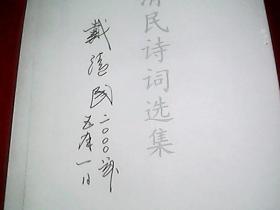 清民诗词选集
戴清民
二〇〇〇年
五月一日